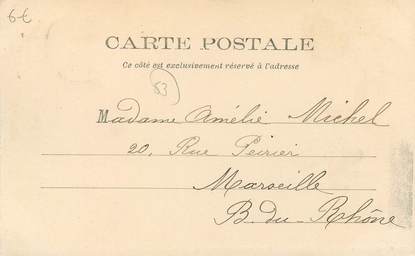 6€
CARTE POSTALE
Ce côté est exclusivement réservé à l'adresse
53
Madame Amélie Michel
20, Rue Peirier
Marseille
B. du. Rhône